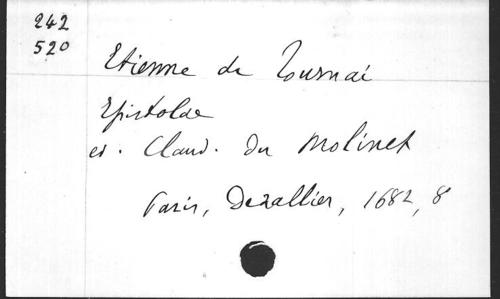 242
520
Etienne de Tournai
Epistolae
ed. Claud. du Molinet
Paris, Dezallier, 1682, 8